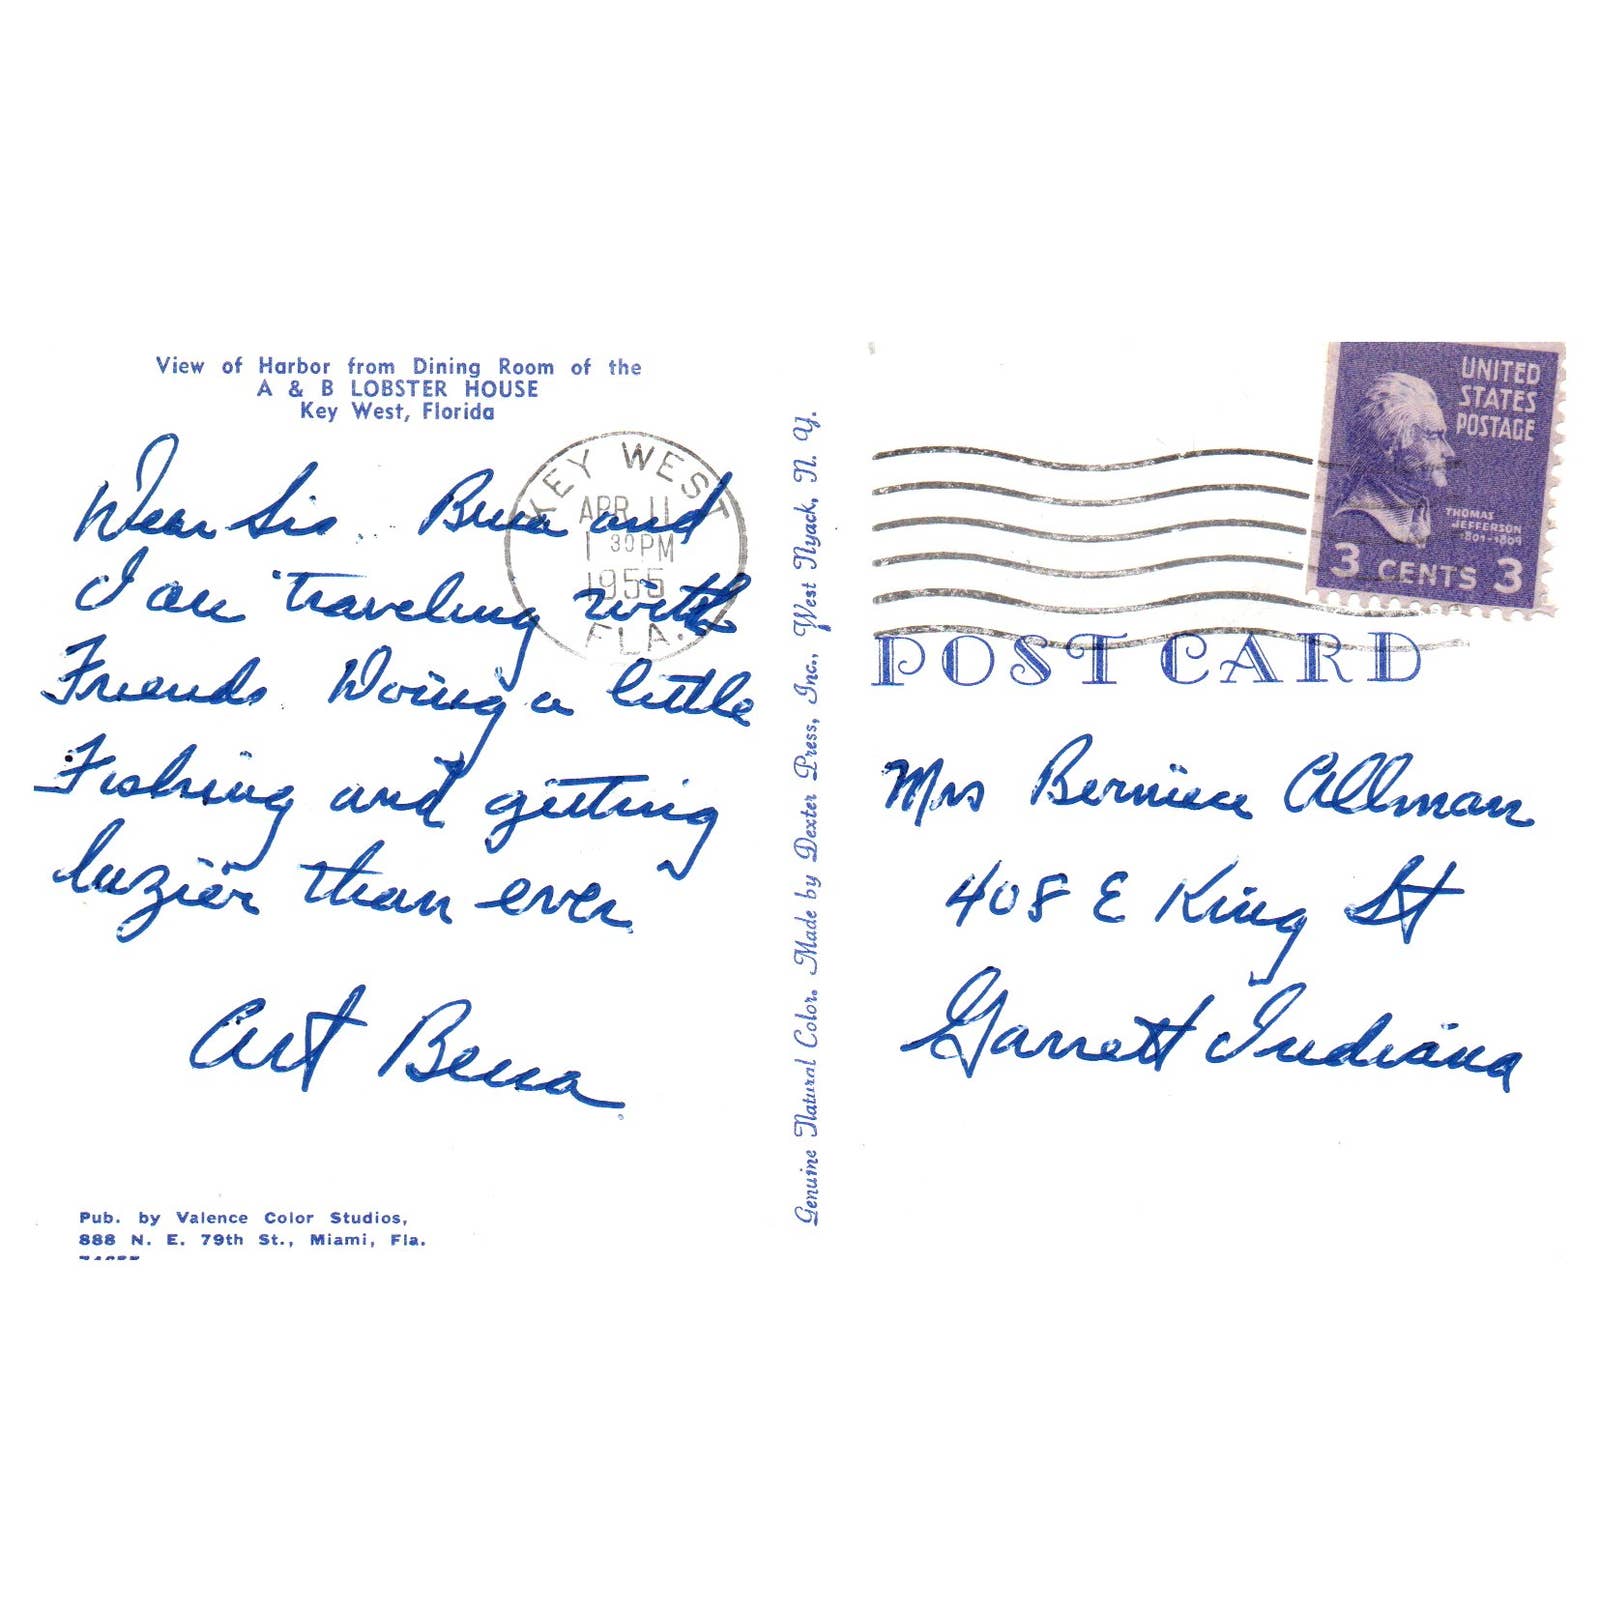 View of Harbor from Dining Room of the
A & B LOBSTER HOUSE
Key West, Florida
KEY WEST
APR 11
1 30 PM
1955
FLA.
Dear Sis. and
I are traveling with
Friends Doing a little
Fishing and getting
lazier than ever
Art
Pub. by Valence Color Studios,
888 N. E. 79th St., Miami, Fla.
Genuine Natural Color. Made by Dexter Press, Inc., West Nyack, N. Y.
UNITED
STATES
POSTAGE
THOMAS
JEFFERSON
1801-1809
3 CENTS 3
POST CARD
Mrs Berniece Allman
408 E King St
Garrett Indiana